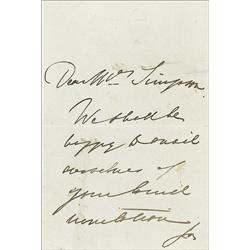 Dear Mrs Simpson
We shall be
happy to avail
ourselves of
your kind
invitation
for